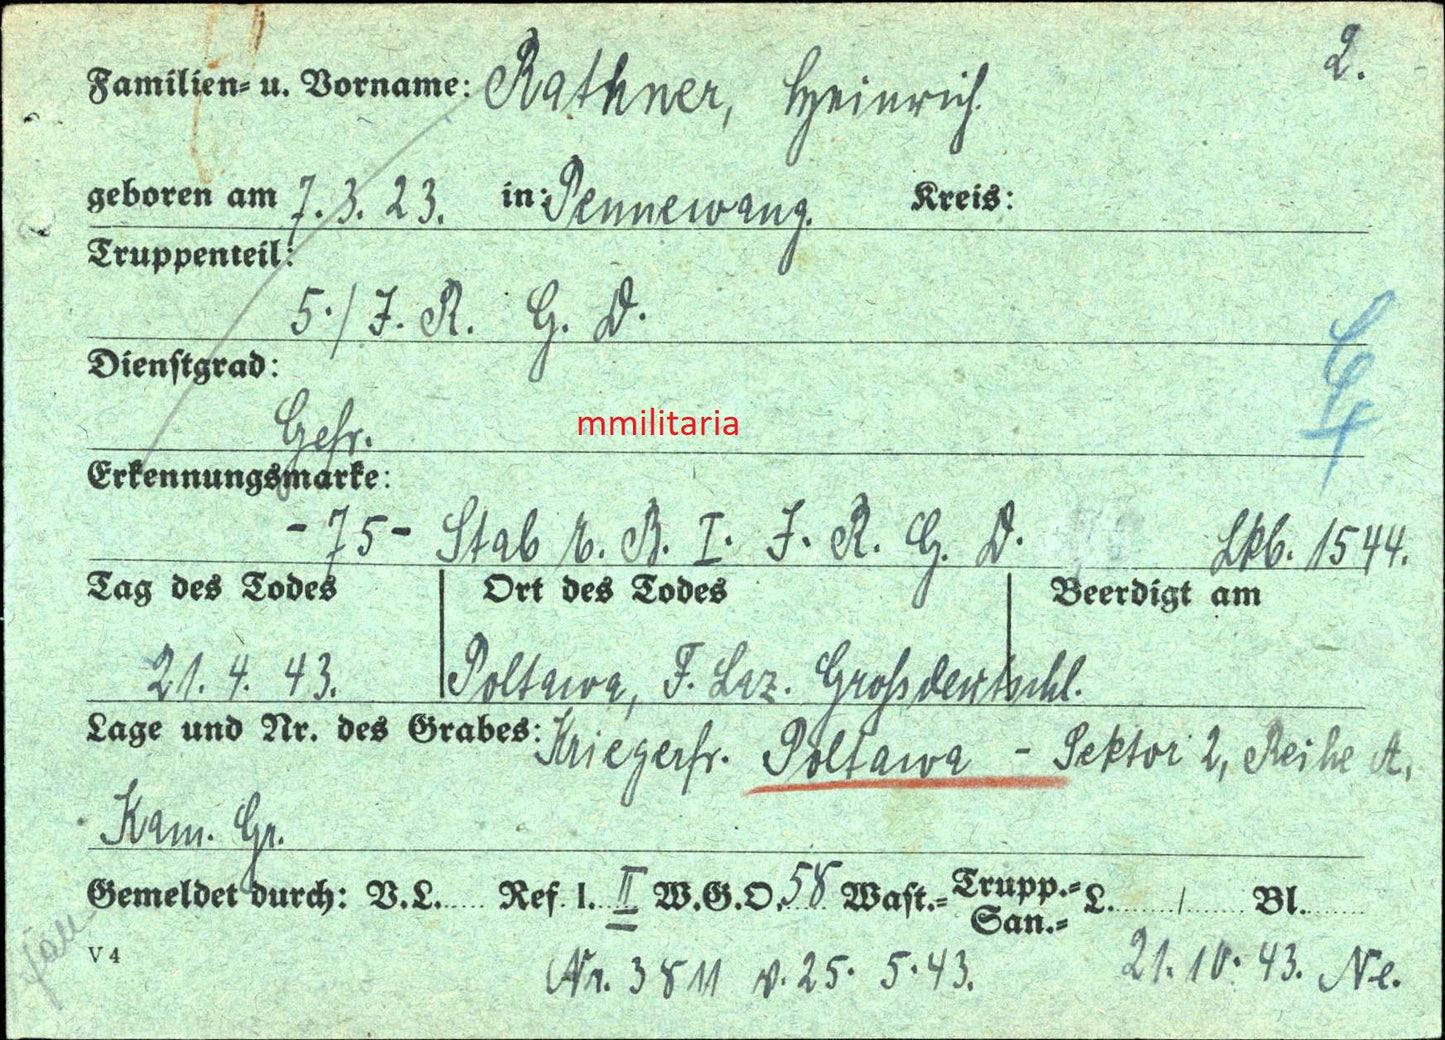 2.
Familien= u. Vorname: Rathner, Heinrich
geboren am 7. 3. 23. in: Pennewang. Kreis:
Truppenteil:
5./ J. R. G. D.
Dienstgrad:
Gefr.
mmilitaria
Erkennungsmarke:
- 75 - Stab E. B. I. J. R. G. D. Lkb. 1544.
Tag des Todes Ort des Todes Beerdigt am
21. 4. 43. Poltawa, F. Laz. Großdeutschl.
Lage und Nr. des Grabes: Kriegerfr. Poltawa - Sektor 2, Reihe A,
Kam. Gr.
Gemeldet durch: V.L. Ref. I. II W.G.O. 58 Wast.= Trupp.= San.= L. / Bl.
V 4
Nr. 3811 v. 25. 5. 43. 21. 10. 43. Ne.